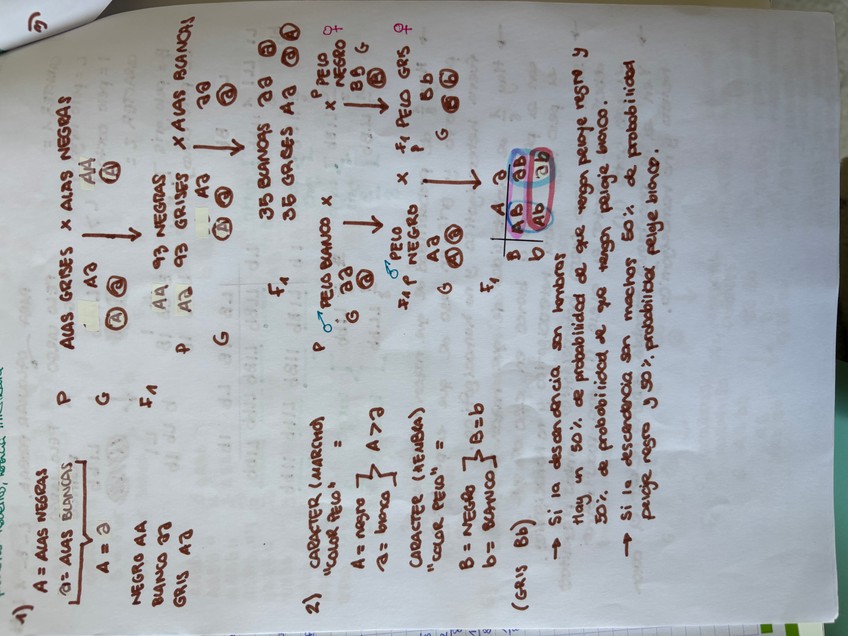 1) A = ALAS NEGRAS
a = ALAS BLANCAS
A = a
NEGRO AA
BLANCO aa
GRIS Aa
P ALAS GRISES x ALAS NEGRAS
Aa AA
G A a A
F1 AA 93 NEGRAS
Aa 93 GRISES
P GRISES x ALAS BLANCAS
Aa aa
G A a a
F1 35 BLANCAS aa a
35 GRISES Aa a A
2) CARACTER (MACHO)
"COLOR PELO" =
A = negro
a = blanco } A > a
CARACTER (HEMBRA)
"COLOR PELO" =
B = NEGRO
b = BLANCO } B = b
(GRIS Bb)
P ♂ PELO BLANCO x P PELO NEGRO ♀
aa BB
G a G B
F1 P ♂ PELO NEGRO x F1 P PELO GRIS ♀
Aa Bb
G A a G B b
F1
A a
B AB aB
b Ab ab
→ Si la descendencia son hembras
Hay un 50% de probabilidad de que tengan pelaje negro y
50% de probabilidad de que tengan pelaje blanco.
→ Si la descendencia son machos 50% de probabilidad
pelaje negro y 50% probabilidad pelaje blanco.
3)